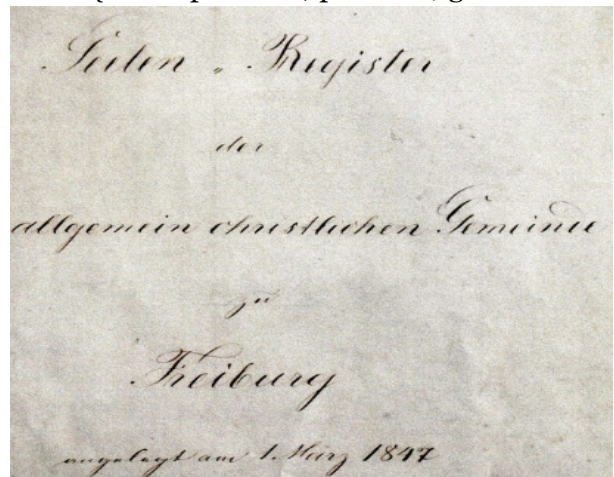 Seelen-Register
der
allgemein christlichen Gemeinde
zu
Freiburg
angelegt am 1. März 1847